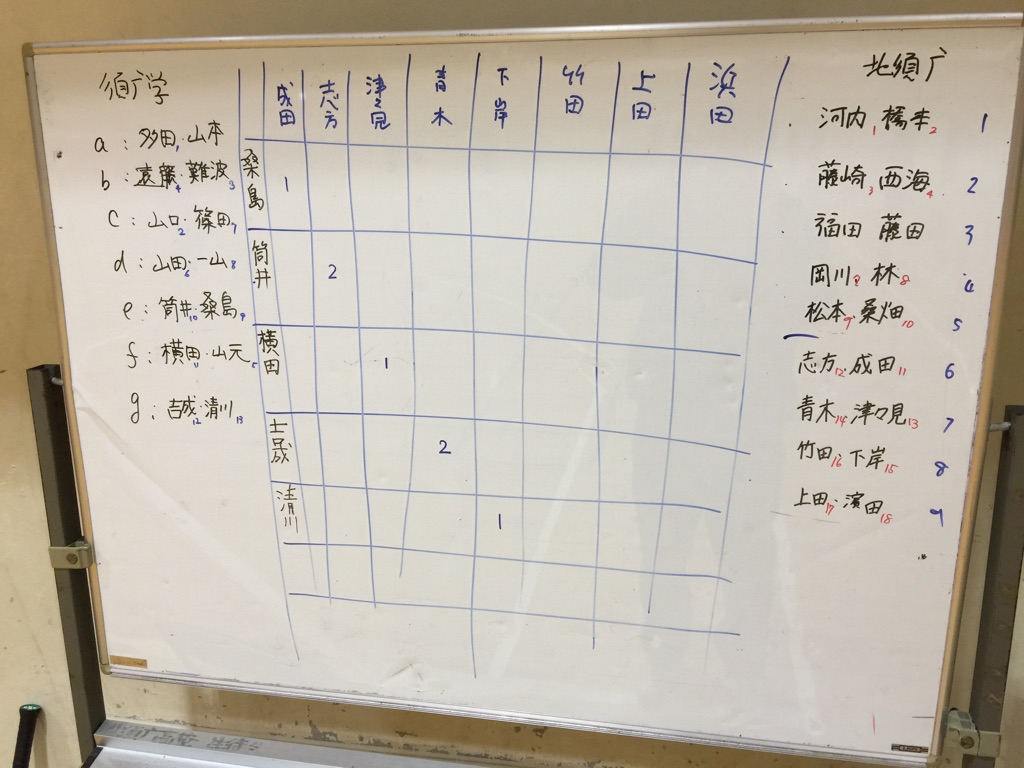 須广学
a : 多田 1 ・山本
b : 遠藤 4 ・難波 3
c : 山口 2 ・篠田 7
d : 山田 6 ・一山 8
e : 筒井 10 ・桑島 9
f : 横田 11 ・山元 5
g : 吉成 12 ・清川 13
成田 志方 津々見 青木 下岸 竹田 上田 浜田
桑島 1
筒井 2
横田 1
吉成 2
清川 1
北須广
河内 1 橋本 2 1
藤崎 3 西海 4 2
福田 藤田 3
岡川 林 8 4
松本 9 ・桑畑 10 5
志方 12 ・成田 11 6
青木 14 津々見 13 7
竹田 16 下岸 15 8
上田 17 ・濱田 18 9